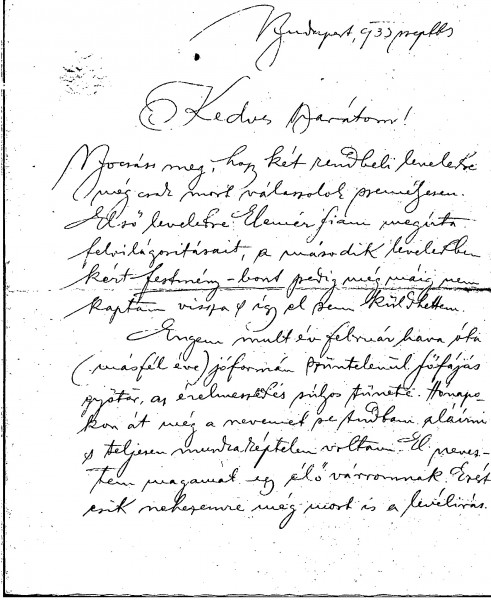 Budapest, 933 szept 5
Kedves Barátom!
Bocsáss meg, hogy két rendbeli leveledre
még csak most válaszolok személyesen.
Első leveledre Elemér fiam megírta
felvilágosításait, a második leveledben
kért festmény-bont pedig még máig nem
kaptam vissza s így el sem küldhettem.
Engem mult év február hava óta
(másfél éve) jóformán szüntelenül főfájás
gyötör, az érelmeszedés súlyos tünete. Hónapo
kon át még a nevemet se tudtam aláírni
s teljesen munkaképtelen voltam. El nevez-
tem magamat egy élő várromnak. Ezért
esik nehezemre még most is a levélirás.